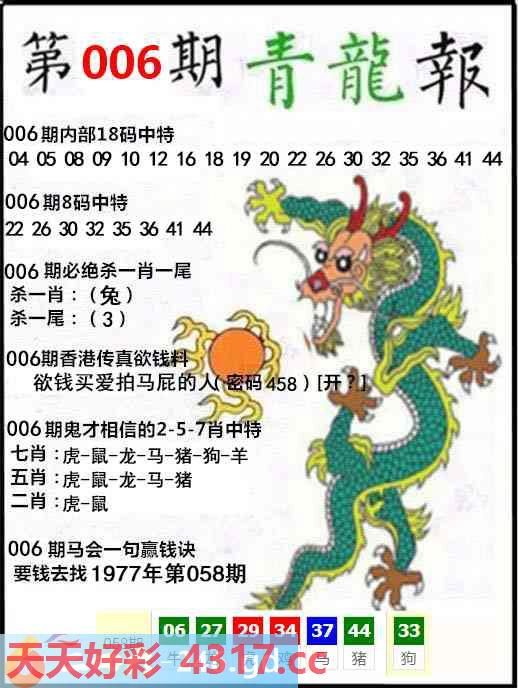 第006期 青龍報
006期内部18码中特
04 05 08 09 10 12 16 18 19 20 22 26 30 32 35 36 41 44
006期8码中特
22 26 30 32 35 36 41 44
006 期必绝杀一肖一尾
杀一肖：（兔）
杀一尾：（3）
006期香港传真欲钱料
欲钱买爱拍马屁的人(密码458)[开？]
006期鬼才相信的2-5-7肖中特
七肖：虎-鼠-龙-马-猪-狗-羊
五肖：虎-鼠-龙-马-猪
二肖：虎-鼠
006期马会一句赢钱诀
要钱去找1977年第058期
058期 06 27 29 34 37 44 33
牛 鸡 马 猪 狗
天天好彩 4317.cc